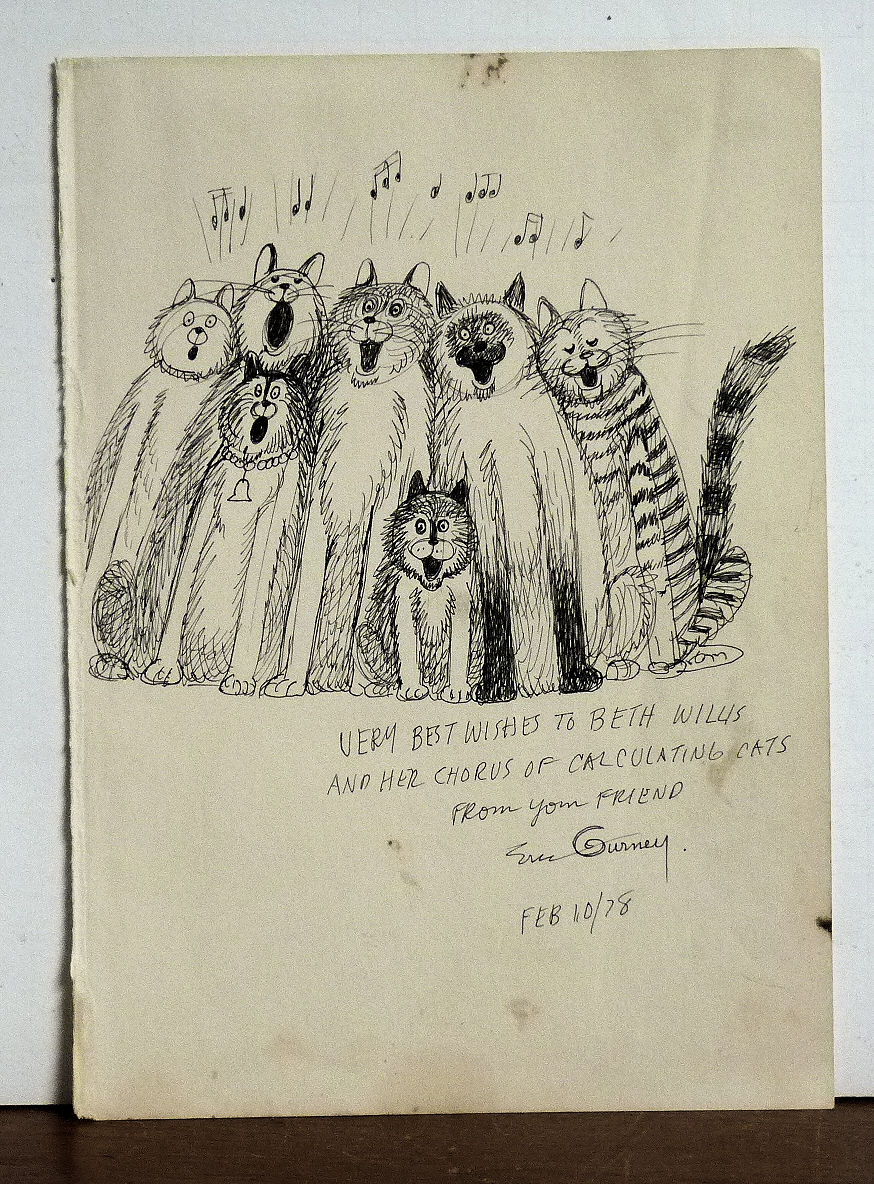 VERY BEST WISHES TO BETH WILLIS
AND HER CHORUS OF CALCULATING CATS
FROM YOUR FRIEND
Eric Gurney.
FEB 10/78